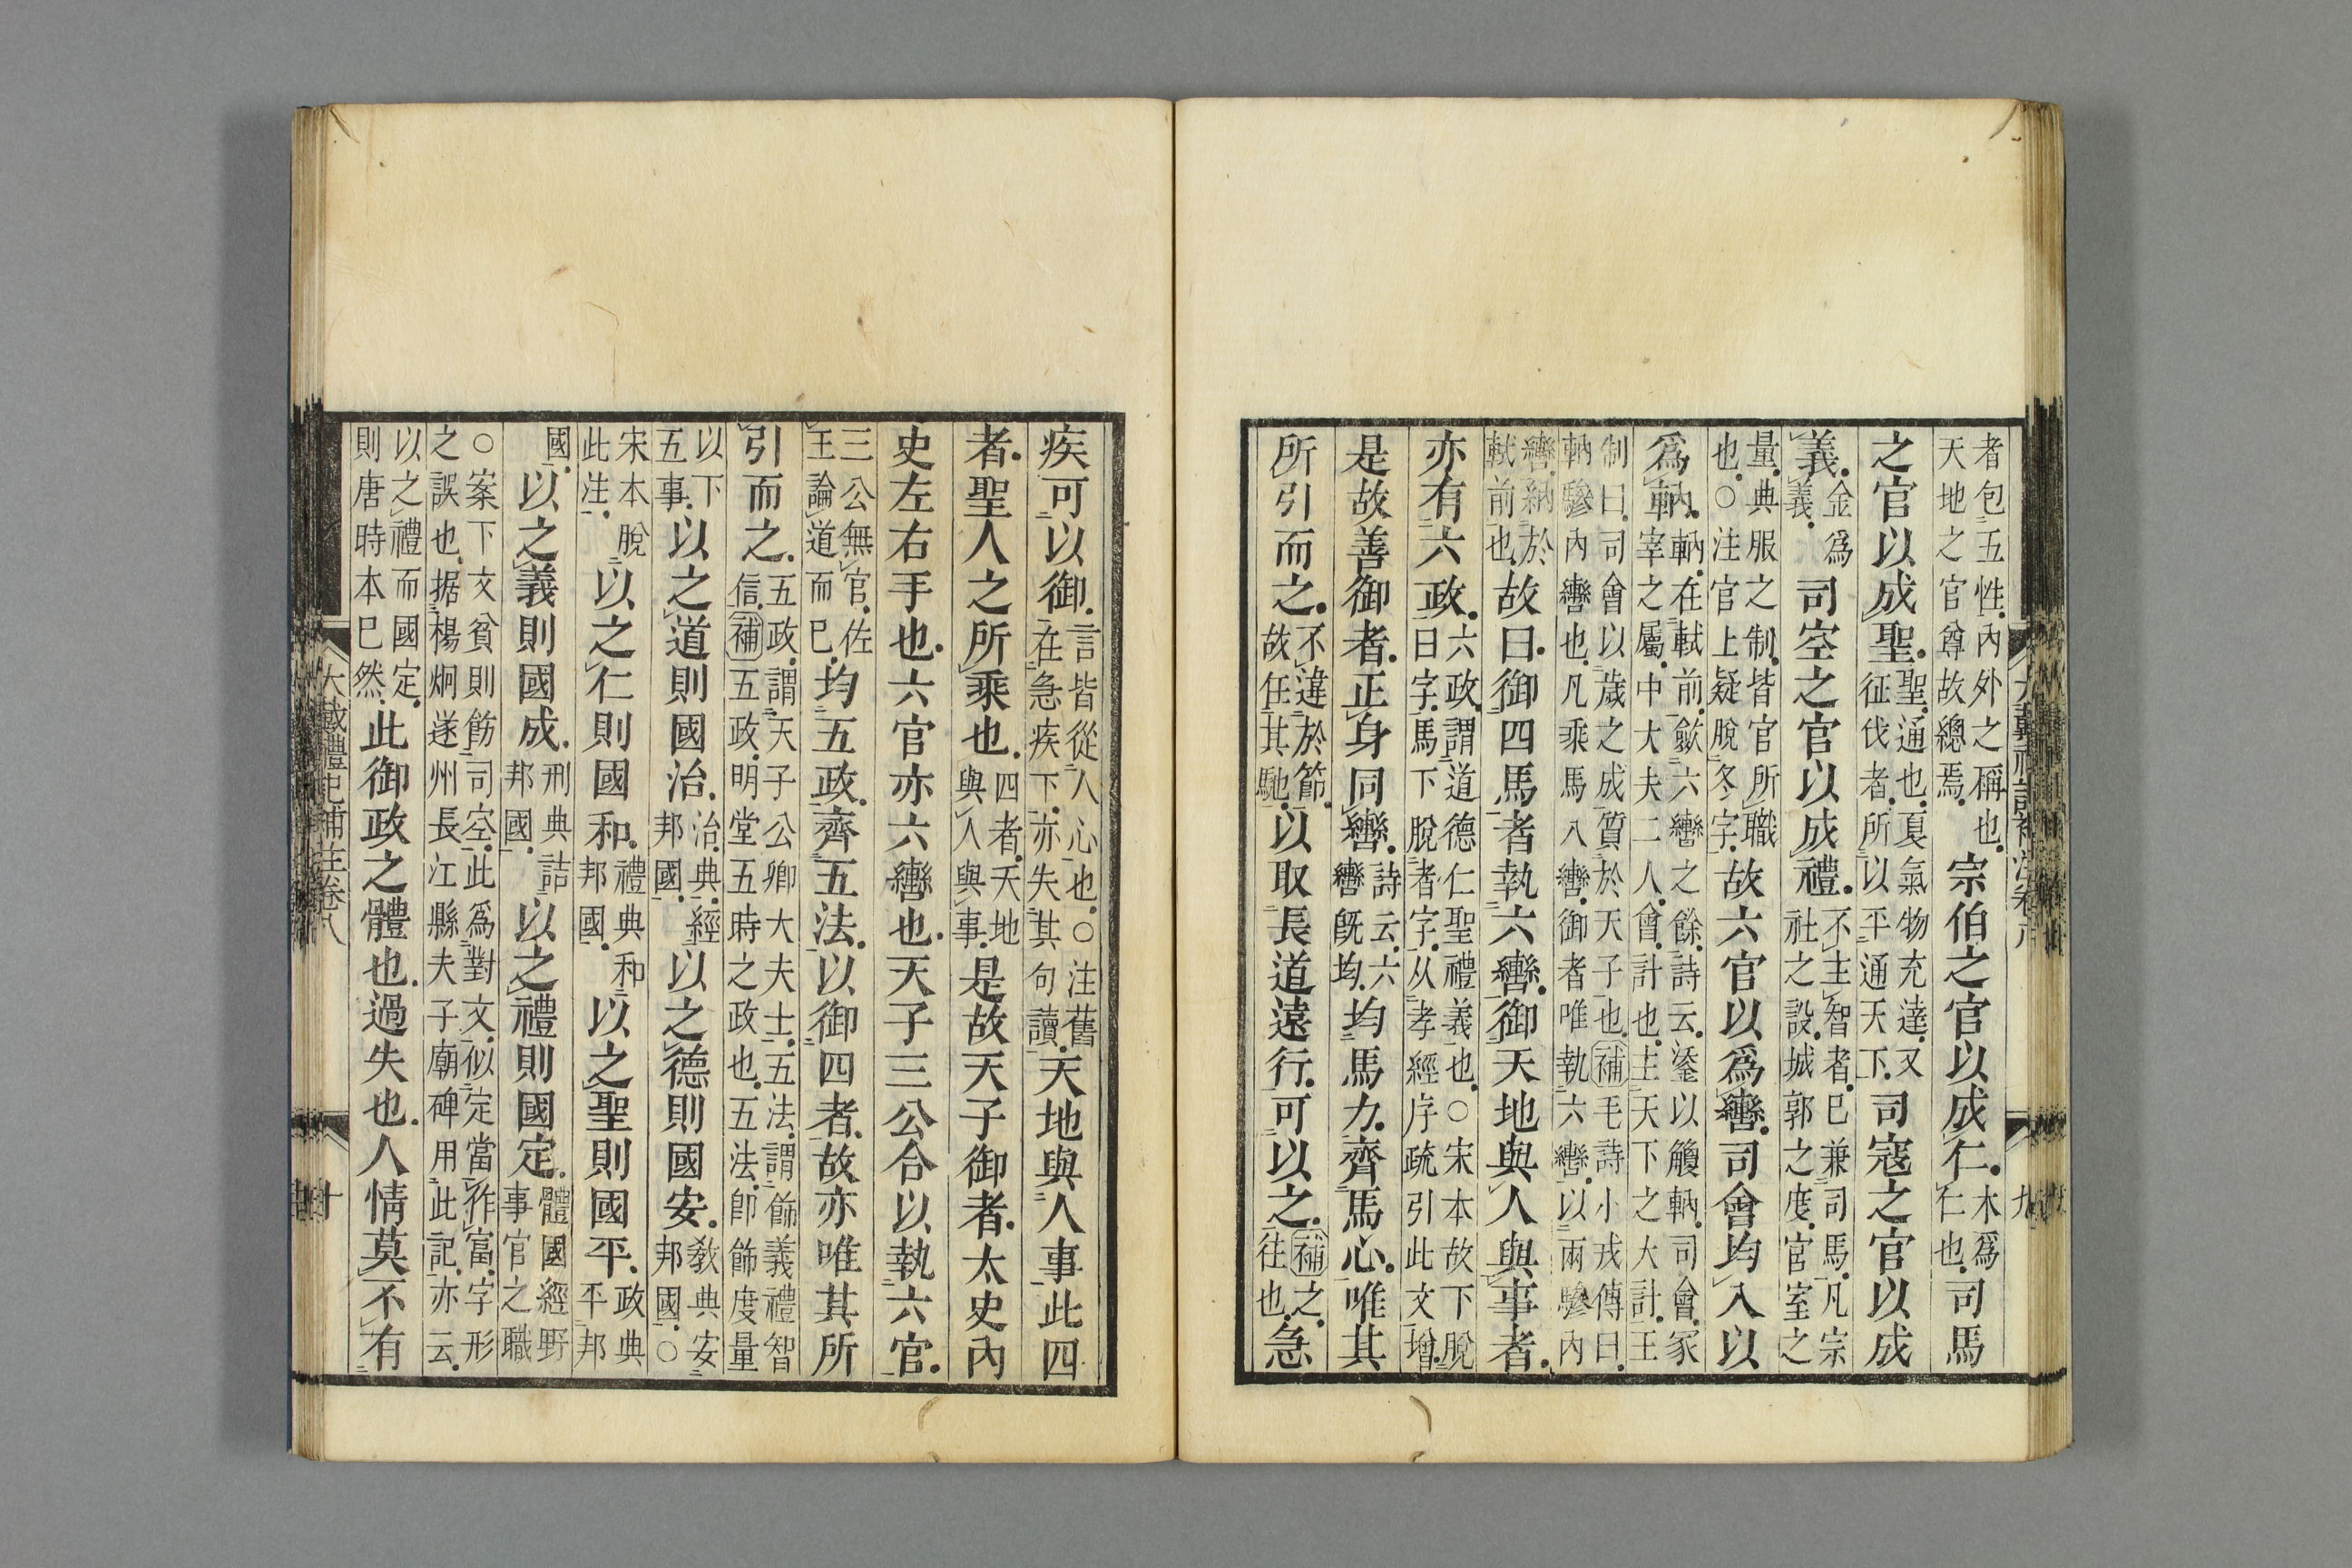 者包五性.內外之稱也.天地之官尊故總焉.宗伯之官以成仁.木爲仁也.司馬
之官以成聖.聖.通也.夏氣物充達.又征伐者.所以平通天下.司寇之官以成
義.金爲義.司空之官以成禮.不主智者.已兼司馬.凡宗社之設.城郭之度.官室之
量.典服之制.皆官所職也.○注官上疑脫冬字.故六官以爲轡.司會均入以
爲軜.軜.在軾前.歛六轡之餘.詩云.鋈以觼軜.司會.冢宰之屬.中大夫二人.會.計也.主天下之大計.王
制曰.司會以歲之成質於天子也.補毛詩小戎傳曰.軜驂內轡也.凡乘馬八轡.御者唯執六轡.以兩驂內
轡.納於軾前也.故曰.御四馬者執六轡.御天地與人與事者.
亦有六政.六政.謂道德仁聖禮義也.○宋本故下脫曰字.馬下脫者字.从孝經序疏引此文增.
是故善御者.正身同轡.詩云.六轡旣均.均馬力.齊馬心.唯其
所引而之.不違於節.故任其馳.以取長道遠行.可以之.補之.往也.急
疾可以御.言皆從人心也.○注舊在急疾下.亦失其句讀.天地與人事.此四
者.聖人之所乘也.四者.天地與人與事.是故天子御者.太史內
史左右手也.六官亦六轡也.天子三公合以執六官.
三公無官.佐王論道而已.均五政.齊五法.以御四者.故亦唯其所
引而之.五政.謂天子公卿大夫士.五法.謂飾義禮智信.補五政.明堂五時之政也.五法.卽飾度量
以下五事.以之道則國治.治典.經邦國.以之德則國安.敎典安邦國.○
宋本脫此注.以之仁則國和.禮典和邦國.以之聖則國平.政典平邦
國.以之義則國成.刑典詰邦國.以之禮則國定.體國經野事官之職
○案下文貧則飭司空.此爲對文.似定當作富.字形之誤也.据楊炯遂州長江縣夫子廟碑用此記.亦云.
以之禮而國定.則唐時本已然.此御政之體也.過失也.人情莫不有
大戴禮記補注卷八 十